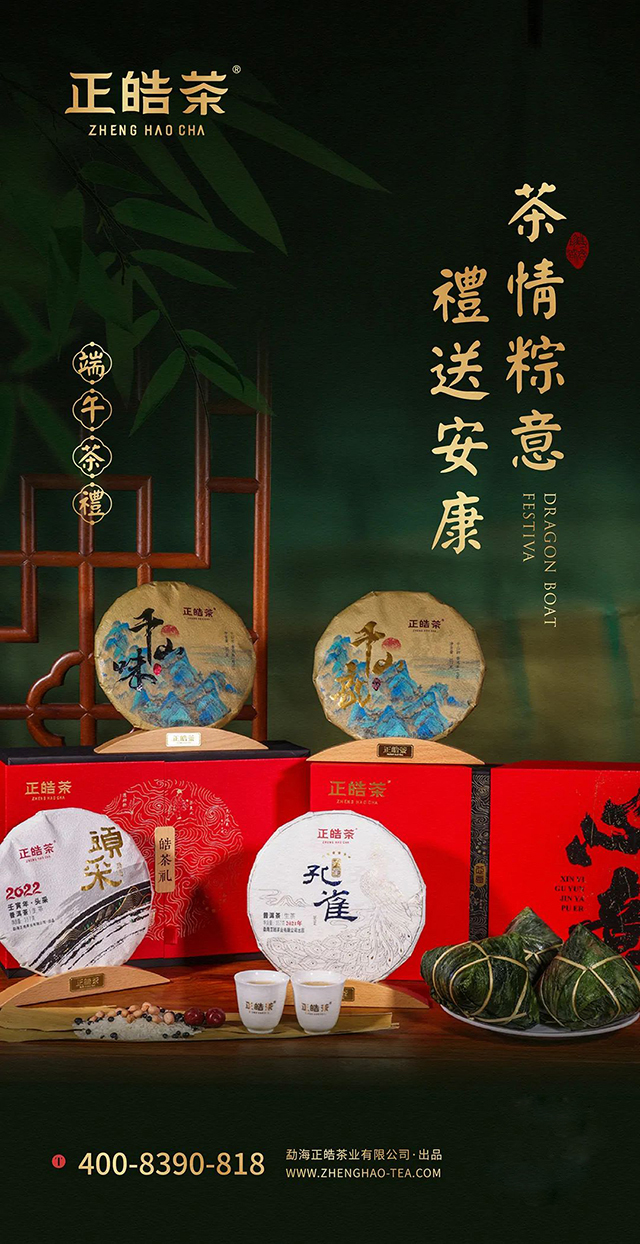 正皓茶®
ZHENG HAO CHA
茶情粽意
禮送安康
DRAGON BOAT
FESTIVA
端午茶禮
正皓茶
千山味
正皓茶
正皓茶
千山韵
正皓茶
正皓茶
ZHENG HAO CHA
皓茶礼
正皓茶
ZHENG HAO CHA
正皓茶
頭采
2022
壬寅年·头采
普洱茶|生茶
正皓茶
正皓茶
孔雀
普洱茶|生茶
2021年
正皓茶
正皓茶
正皓茶
XIN YI
GU YUN
JIN YA
PU ER
400-8390-818
勐海正皓茶业有限公司·出品
WWW.ZHENGHAO-TEA.COM